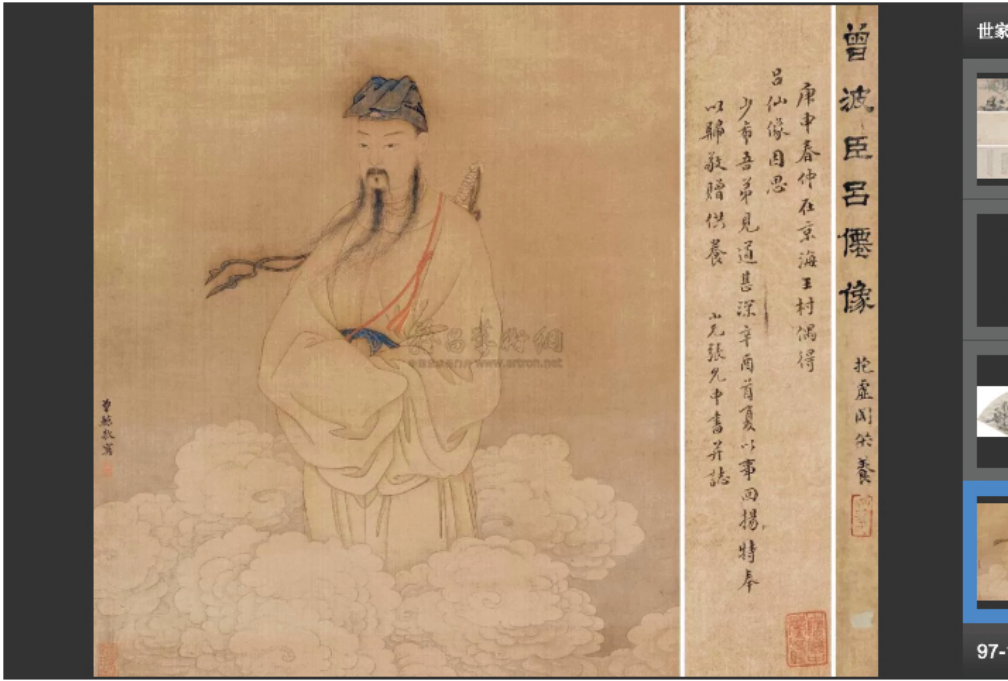 曾波臣呂僊像
抱虛閣供養
庚申春仲在京海王村偶得
呂仙像因思
少甫吾弟見道甚深辛酉首夏以事回揚特奉
以歸敬贈供養
小兄張允中書并誌
曾鯨敬寫
www.artron.net
世家
97-